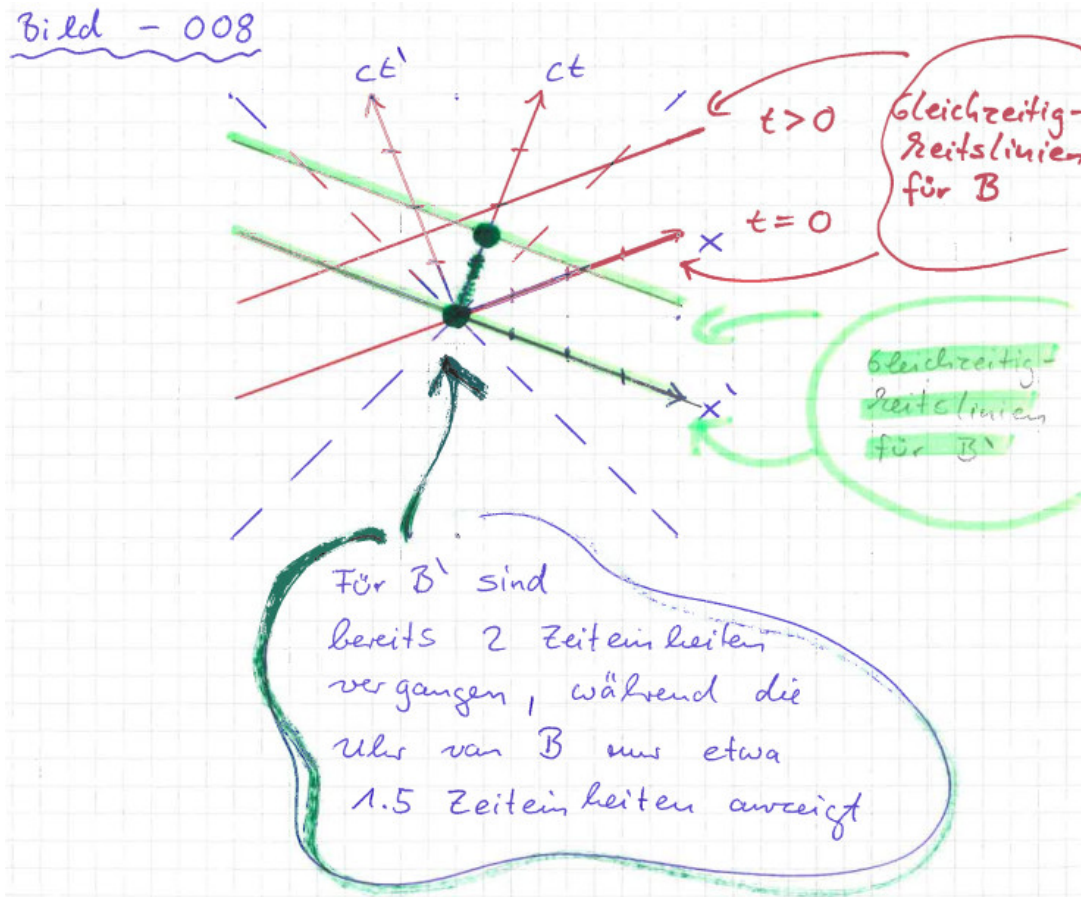 Bild - 008
ct`
ct
t>0
Gleichzeitig-
keitslinien
für B
t=0
x
Gleichzeitig-
keitslinien
für B`
x`
Für B` sind
bereits 2 Zeiteinheiten
vergangen, während die
Uhr von B nur etwa
1.5 Zeiteinheiten anzeigt